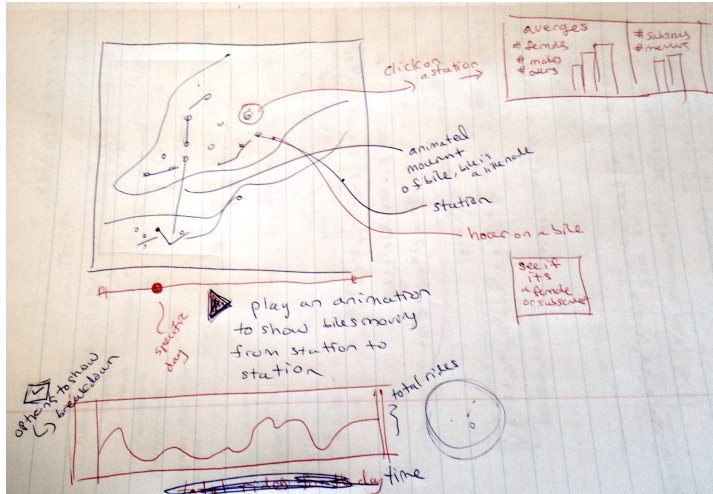 averges
# femas
# males
# others
# subscribers
# 
click on
a station
animated
movment
of bike, bike is
a little node
station
hover on a bike
see if
its
a female
or subscriber
specific
day
play an animation
to show bikes moving
from station to
station
options to show
breakdown
total rides
day time